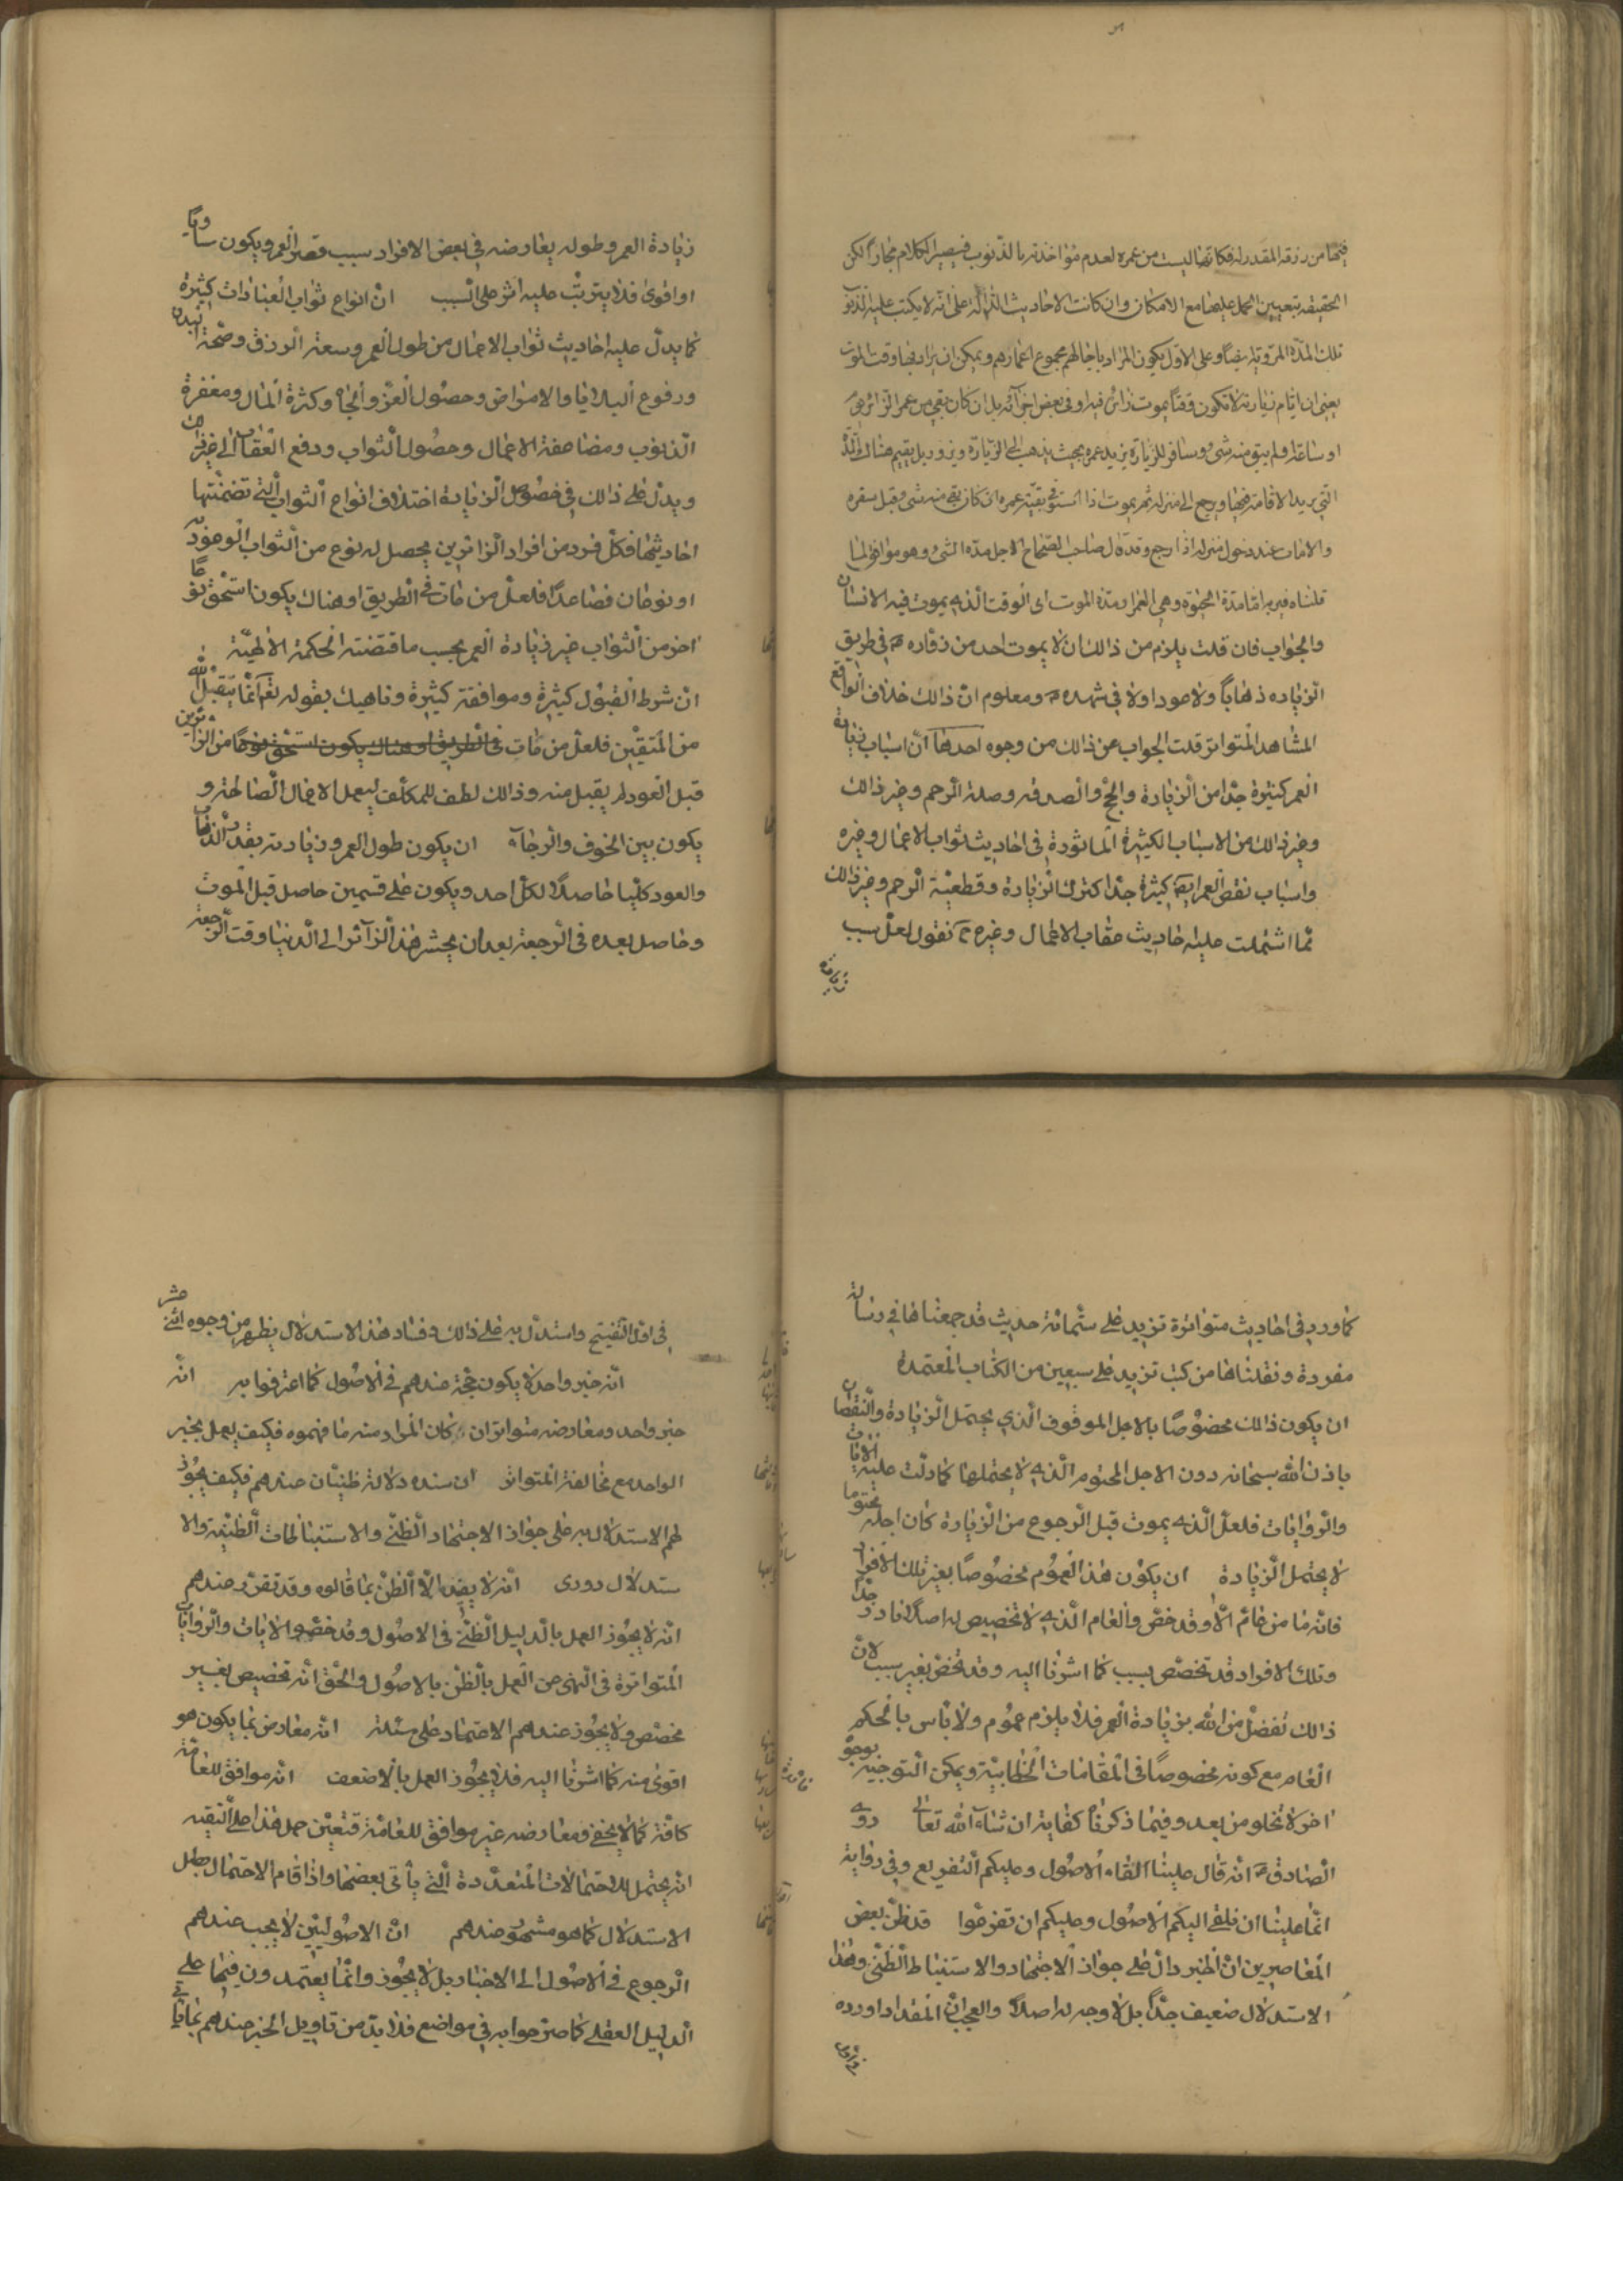 فيها من رزقه المقدر له فكانها ليست من عمره لعدم مؤاخذته بالذنوب فيصير الكلام مجازاً لكن
الحقيقة يتعيين الحمل عليها مع الامكان وان كانت الاحاديث الدالة على انه لا يكتب عليه الذنوب
تلك المدة المروية ايضاً وعلى الاول يكون المراد باجالهم مجموع اعمارهم ويمكن ان يراد بها وقت الموت
يعني ان ايام زيارته لا تكون وقتاً يموت زائر فيه او في بعض اجزآئه بل ان كان بقي من عمر الزائر يوم
او ساعة او لم يبق منه شئ وسافر للزيارة يزيد عمره بحيث يذهب الى الزيارة ويزور بل يقيم هناك المدة
التي يريد الاقامة فيها ويرجع الى منزله ثم يموت اذا استوفى بقية عمره ان كان بقي منه شئ وقبل سفره
والامات عند دخول منزله اذا رجع وقد قال صاحب الصحاح الاجل مدة الشئ وهو موافق لما
قلناه فيراد امّا مدة الحيوة وهي العمر او مدة الموت اى الوقت الذي يموت فيه الانسان
والجواب فان قلت يلزم من ذالك ان لا يموت احد من زواره في طريق
الزيادة ذهاباً ولا عودا ولا في مشهده ومعلوم انّ ذالك خلاف الواقع
المشاهد المتواتر قلت الجواب عن ذالك من وجوه احدها انّ اسباب زيادة
العمر كثيرة جدّا من الزيادة والحج والصدقه وصلة الرحم وغير ذالك
وغير ذالك من الاسباب الكثيرة المأثورة في احاديث ثواب الاعمال وغيره
واسباب نقص العمر ايضا كثيرة جدّا كترك الزيادة وقطعيّة الرحم وغير ذالك
ممّا اشتملت عليه احاديث عقاب الاعمال وغيره نقول لعلّ سبب
زيادة
زيادة العمر وطوله يعارضه في بعض الافراد سبب قصر العمر ويكون مساويا
او اقوى فلا يترتّب عليه اثر على السبب انّ انواع ثواب العبادات كثيرة
كما يدلّ عليه احاديث ثواب الاعمال من طول العمر وسعة الرزق وصّحة البدن
ودفوع البلايا والامراض وحصول العزّ والجاه وكثرة المال ومغفرة
الذنوب ومضاعفة الاعمال وحصول الثواب ودفع العقاب الى غير ذلك
ويدلّ على ذالك في خصوص الزيادة اختلاف انواع الثواب التي تضمنّتها
احاديثها فكلّ فرد من افراد الزائرين يحصل له نوع من الثواب الموعود به
او نوعان فصاعداً فلعلّ من مات في الطريق او هناك يكون استحقّ نوعا
اخر من الثواب غير زيادة العمر بحسب ما اقتضته الحكمة الالهيّة
انّ شرط القبول كثيرة وموافقة كثيرة وناهيك بقوله تعا انّما يتقبّل الله
من المتقيّن فلعلّ من مات في الطريق او هناك يكون استحقّ نوعا من الزائرين
قبل العود لم يقبل منه وذالك لطف للمكلّف ليعمل الاعمال الصّالحة و
يكون بين الخوف والرجآء ان يكون طول العمر وزيادته بقدر الذهاب
والعود كليّا حاصلاً لكلّ احد ويكون على قسمين حاصل قبل الموت
وحاصل بعده في الرجعة بعد ان يحشر هذا الزآئر الى الدنيا وقت الرجعة
كما ورد في احاديث متواترة تزيد على ستّمائة حديث قد جمعناها في رسالة
مفردة ونقلناها من كتب تزيد على سبعين من الكتاب المعتمدة
ان يكون ذالك مخصوصًا بالاجل الموقوف الّذي يحتمل الزيادة والنقصان
باذن الله سبحانه دون الاجل المحتوم الّذي لا يحتملها كما دلّت عليه الايات
والروايات فلعلّ الّذي يموت قبل الرجوع من الزيادة كان اجله محتوما
لا يحتمل الزيادة ان يكون هذا العموم مخصوصًا بغير تلك الافراد
فانه ما من عامّ الّا وقد خصّ والعام الّذي لا تخصيص له اصلا نادر جدّا
وتلك الافراد قد تخصّص بسبب كما اشرنا اليه وقد تخصّ بغير سبب لانّ
ذالك تفضّل من الله بزيادة العمر فلا يلزم عموم ولا باس بالحكم
العام مع كونه مخصوصًا في المقامات الخطابيّة ويمكن التوجيه بوجوه
اخر لا تخلو من بعد وفيما ذكرناه كفاية ان شاء الله تعالى روى
الصّادق انه قال علينا القاء الاصول وعليكم التفريع وفي رواية
انّما علينا ان نلقى اليكم الاصول وعليكم ان تفرعوا قد ظنّ بعض
المعاصرين انّ الخبر دالّ على جواز الاجتهاد والاستنباط الظنّى وهذا
الاستدلال ضعيف جدّاً بل لا وجه له اصلاً والعجب انّ المقداد اورده
في اوّل التنقيح واستدلّ به على ذالك وفساد هذا الاستدلال يظهر من وجوه اثنى عشر
انّه خبر واحد لا يكون حجّة عندهم في الاصول كما اعترفوا به انّه
خبر واحد ومعارضه متواتر ان كان المراد منه ما فهموه فكيف يعمل بخبر
الواحد مع مخالفة المتواتر ان سنده ودلالته ظنيّان عندهم فكيف يجوز
لهم الاستدلال به على جواز الاجتهاد الظنّى والاستنباطات الظنيّة والا
ستدلال دورى انّه لا يفيد الّا الظنّ بما قالوه وقد تقرّر عندهم
انّه لا يجوز العمل بالدليل الظنّى في الاصول وقد خصّصوا الايات والروايات
المتواترة في النهى عن العمل بالظنّ بالاصول والحقّ انّه تخصيص بغير
مخصّص ولا يجوز عندهم الاعتماد على مثله انّه معارض بما يكون هو
اقوى منه كما اشرنا اليه فلا يجوز العمل بالاضعف انّه موافق للعامّة
كافّة كما لا يخفى ومعارضه غير موافق للعامّة فتعيّن حمل هذا على التقيه
انّه يحتمل للاحتمالات المتعدّدة الّتى يأتى بعضها واذا قام الاحتمال بطل
الاستدلال كما هو مشهور عندهم انّ الاصوليّين لا يجب عندهم
الرجوع في الاصول الى الاخبار بل لا يجوز وانّما يعتمدون فيها على
الدليل العقلى كما صرّحوا به في مواضع فلا بدّ من تأويل الخبر عندهم بما ياتى